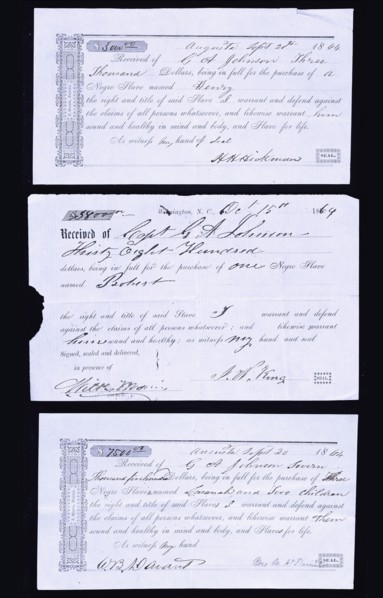 $3000.00 Augusta Sept 20th 1864
Received of G A Johnson Three
Thousand Dollars, being in full for the purchase of a
Negro Slave named Henry
the right and title of said Slave I warrant and defend against
the claims of all persons whatsoever, and likewise warrant him
sound and healthy in mind and body, and Slave for life.
As witness my hand & Seal
H H Hickman SEAL.
$3800.00 Wilmington, N. C., Oct 15th 1864
Received of Capt G A Johnson
Thirty Eight Hundred
dollars, being in full for the purchase of one Negro Slave
named Robert
the right and title of said Slave I warrant and defend
against the claims of all persons whatsoever; and likewise warrant
him sound and healthy; as witness my hand and seal
Signed, sealed and delivered,
in presence of
J. W. King SEAL
$7500.00 Augusta Sept 20 1864
Received of G A Johnson Seven
Thousand five hundred Dollars, being in full for the purchase of Three
Negro Slaves named Savanah and Two Children
the right and title of said Slaves I warrant and defend against
the claims of all persons whatsoever, and likewise warrant them
sound and healthy in mind and body, and Slaves for life.
As witness my hand
W. B. J. Davant SEAL.